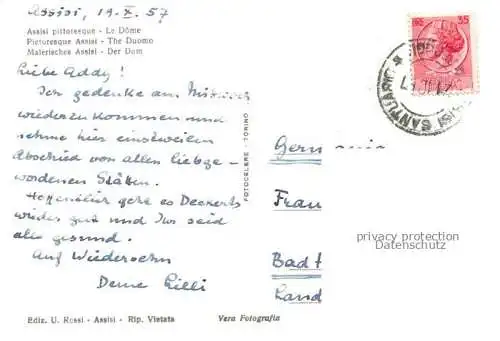 Assisi, 19.X.57
Assisi pittoresque - Le Dôme
Picturesque Assisi - The Duomo
Malerisches Assisi - Der Dom
Liebe Addy!
Ich gedenke am Mittwoch
wiederzukommen und
nehme hier einstweilen
Abschied von allen liebge-
wordenen Stätten.
Hoffentlich geht es Deckerts
wieder gut und Ihr seid
alle gesund.
Auf Wiedersehn
Deine Lilli
Ediz. U. Rossi - Assisi - Rip. Vietata
Vera Fotografia
FOTOCELERE - TORINO
35
SANTUARIO
Germania
Frau
privacy protection
Datenschutz
Bad
Land